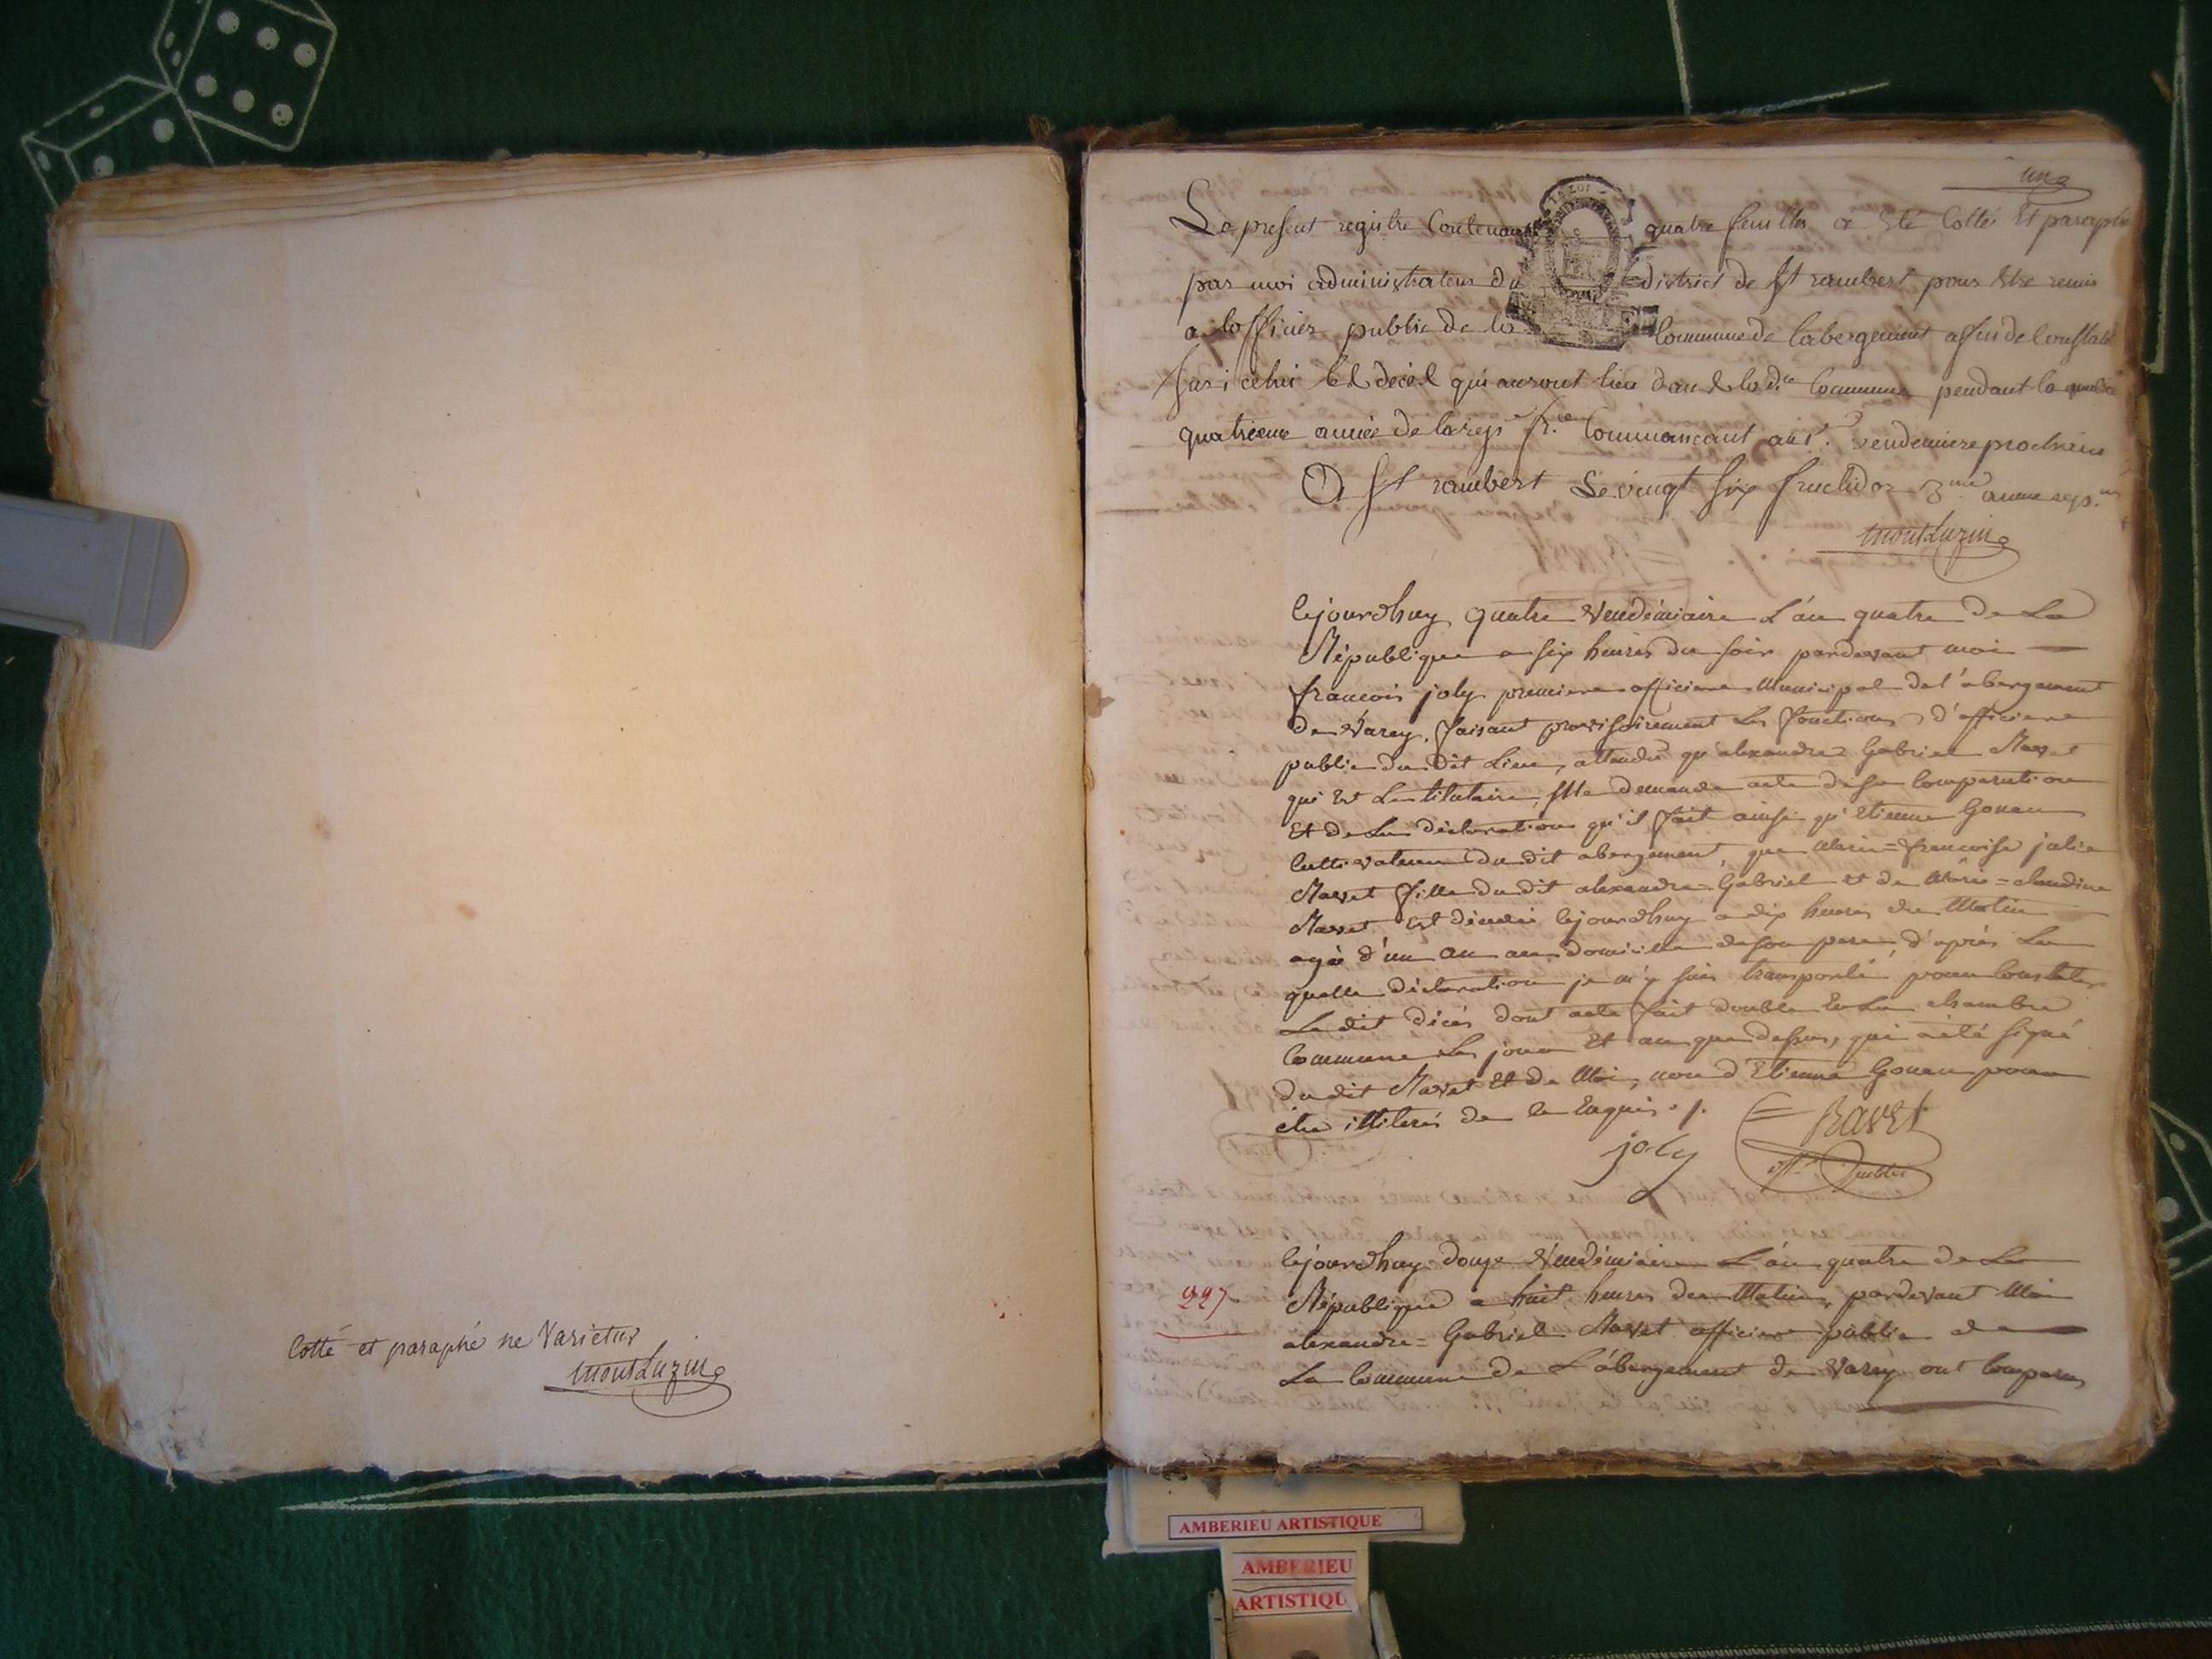 Cotté et paraphé ne Varietur
Montluzin
un
Le present registre Contenant quatre feuilles a été Cotté Et paraphé
par moi administrateur du district de St rambert pour Etre remis
a lofficier public de la Commune de labergement affin de Constater
sur icelui les decès qui auront lieu dans la dte Commune pendant la
quatrieme année de la rep. fr.ce Commancant au 1.er vendemiere prochain
A St rambert Le vingt six fructidor 3me année rep.ne
Montluzin
Cejourdhuy quatre Vendémiaire L'an quatre de La
République a six heures du soir pardevant moi
francois joly premiere officiere Municipal de l'abergement
de Varey, faisant provisoirement Les fonctions d'officiere
public du dit Lieu, attendu qu'alexandre Gabriel Ravet
qui Est Le titulaire, Me demande acte de sa Comparution
Et de La déclaration qu'il fait ainsi qu'Etienne Gonan
Cultivateur du dit abergement, que Marie=francoise julie
Ravet fille du dit alexandre Gabriel et de Marie=claudine
Ravet Est décédée Cejourdhuy a dix heures du Matin
agée d'un an au domicille de son pere, d'après La
quelle déclaration je m'y suis transporté pour Constater
Le dit décés dont acte fait double En La chambre
Commune Les jour Et an que dessus, qui a été signé
du dit Ravet Et de Moi, non d'Etienne Gonan pour
étre illiteré de ce Enquis ./.
joly Ravet
off. Public
Cejourdhuy douze Vendémiaire L'an quatre de La
227 République a huit heures du Matin, pardevant Moi
alexandre=Gabriel Ravet officier public de
La Commune de L'abergement de Varey ont Comparu
AMBERIEU ARTISTIQUE
AMBERIEU
ARTISTIQU